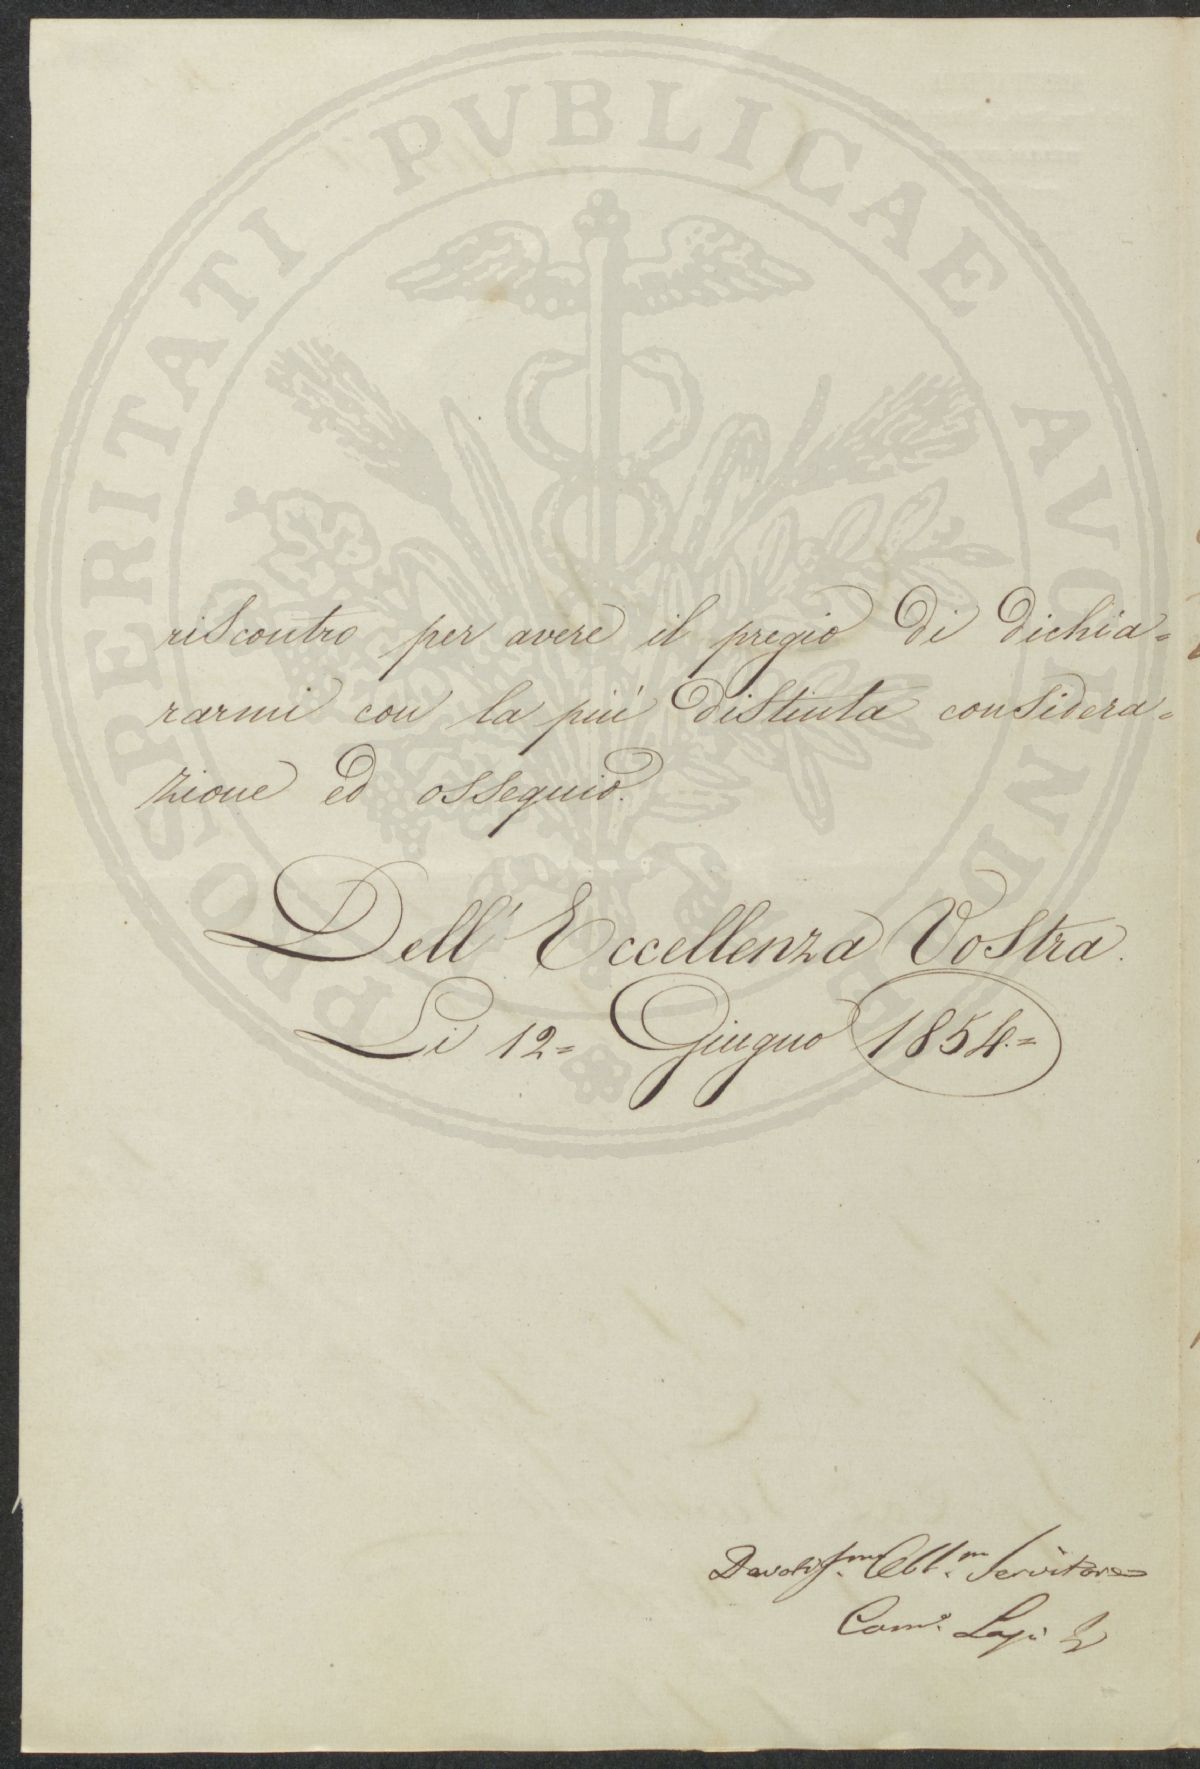 PROSPERITATI PVBLICAE AVGENDAE
riscontro per avere il pregio di dichia=
rarmi con la più distinta considera=
zione ed ossequio.
Dell' Eccellenza Vostra.
Li 12= Giugno 1854.=
Devotis.mo Obb.mo Servitore